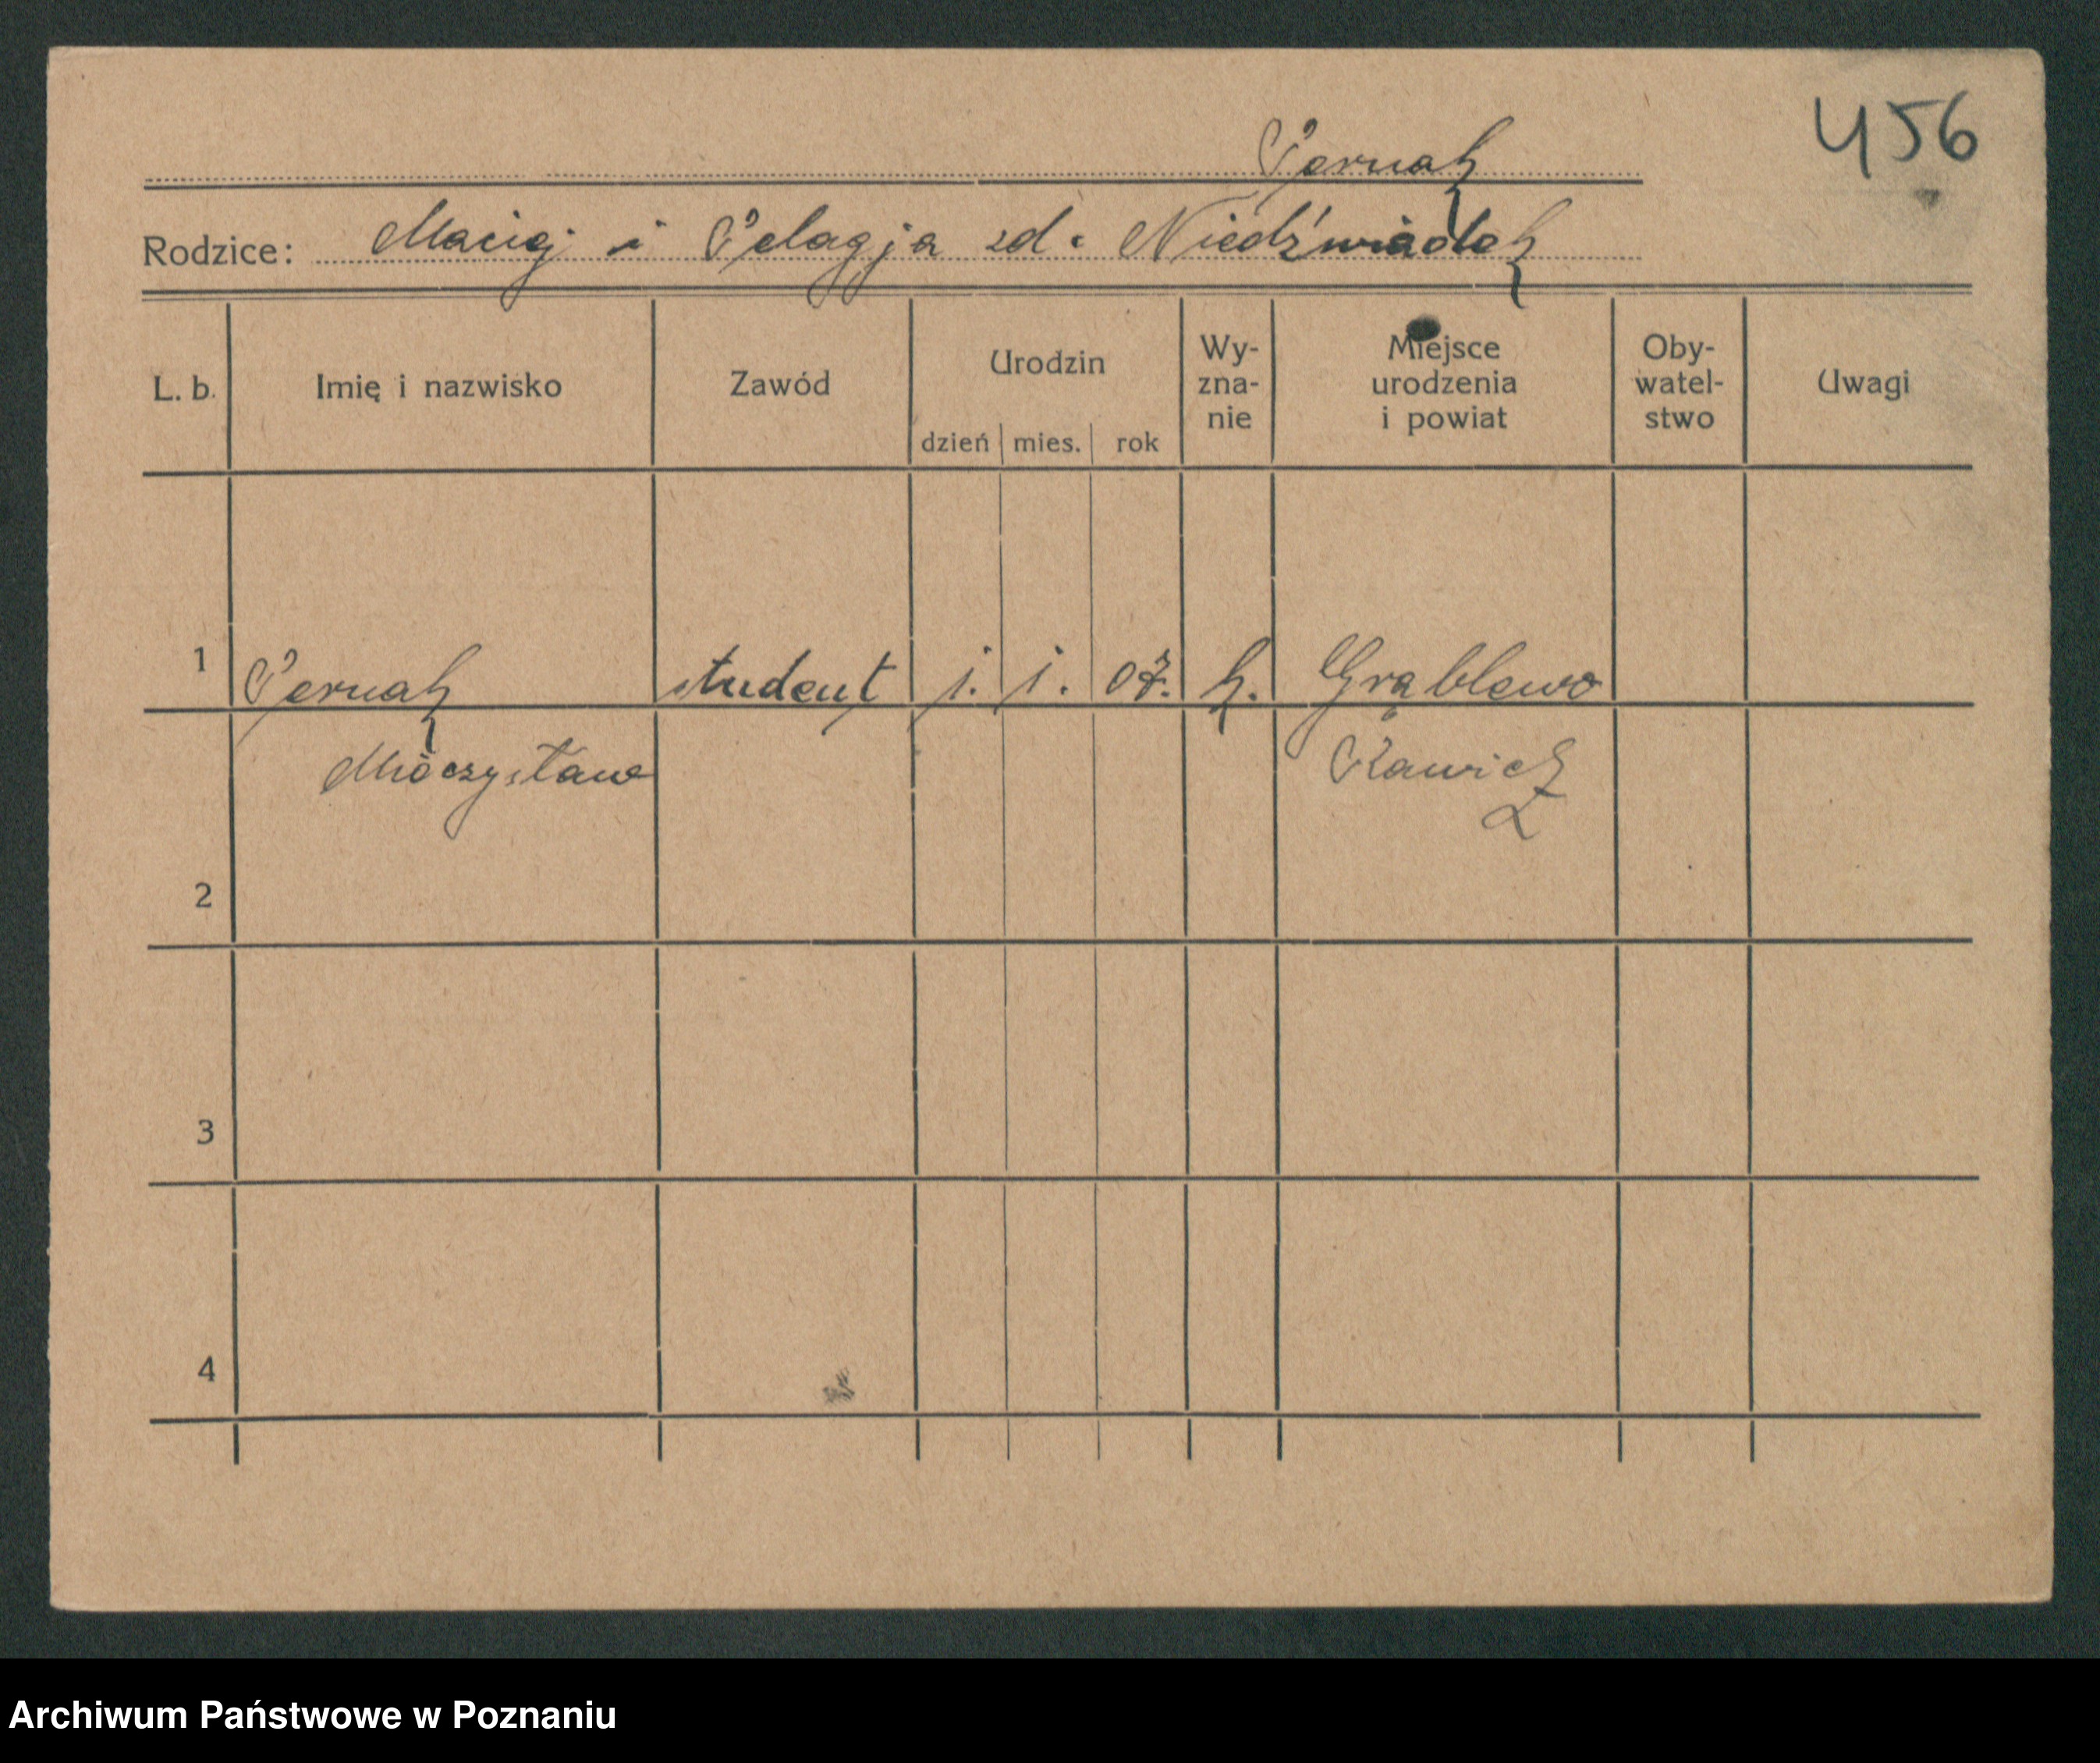 456
Pernak
Rodzice: Maciej i Pelagja zd. Niedźwiadek
L. b. Imię i nazwisko Zawód Urodzin dzień mies. rok Wy-zna-nie Miejsce urodzenia i powiat Oby-watel-stwo Uwagi
1 Pernak student 1. 1. 07. k. Grąblewo
Mieczysław Rawicz
2
3
4
Archiwum Państwowe w Poznaniu